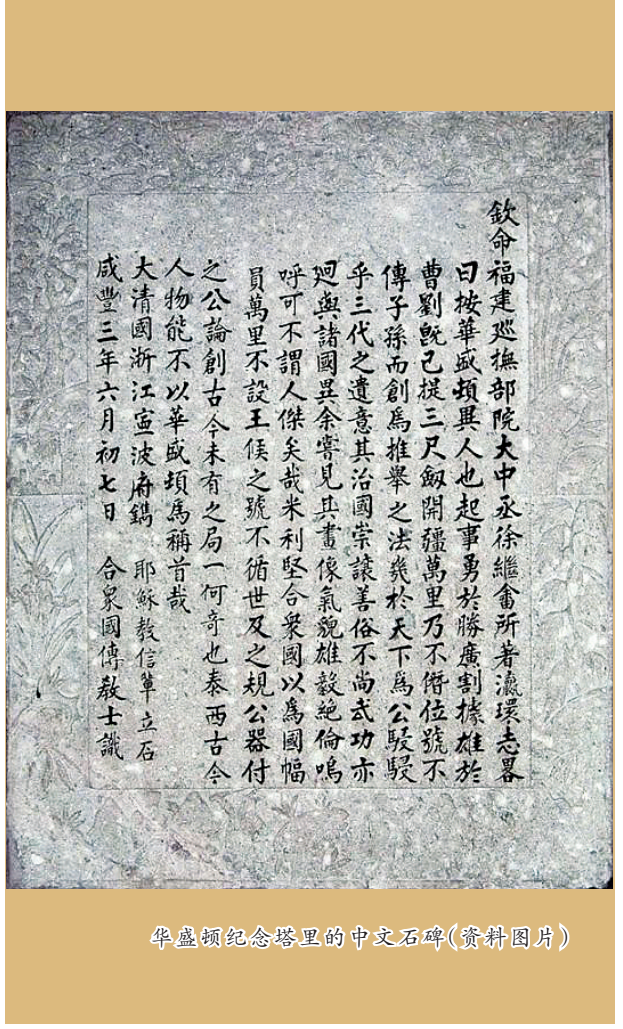 欽命福建巡撫部院大中丞徐繼畬所著瀛環志畧
曰按華盛頓異人也起事勇於勝廣割據雄於
曹劉旣已提三尺劔開疆萬里乃不僭位號不
傳子孫而創爲推舉之法幾於天下爲公駸駸
乎三代之遺意其治國崇讓善俗不尚武功亦
迥與諸國異余嘗見其畫像氣貌雄毅絶倫嗚
呼可不謂人傑矣哉米利堅合衆國以爲國幅
員萬里不設王侯之號不循世及之規公器付
之公論創古今未有之局一何奇也泰西古今
人物能不以華盛頓爲稱首哉
大清國浙江寧波府鐫 耶穌教信輩立石
咸豐三年六月初七日 合衆國傳教士識
华盛顿纪念塔里的中文石碑(资料图片)